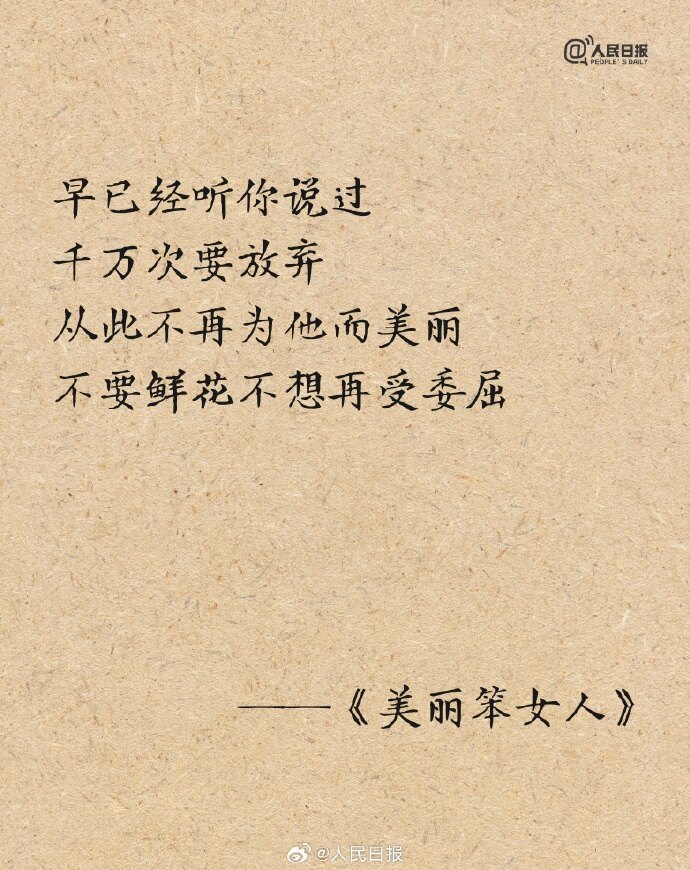 @人民日报
PEOPLE'S DAILY
早已经听你说过
千万次要放弃
从此不再为他而美丽
不要鲜花不想再受委屈
——《美丽笨女人》
@人民日报